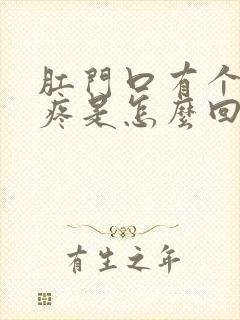 肛門口有个
疼是怎麼回
有生之年